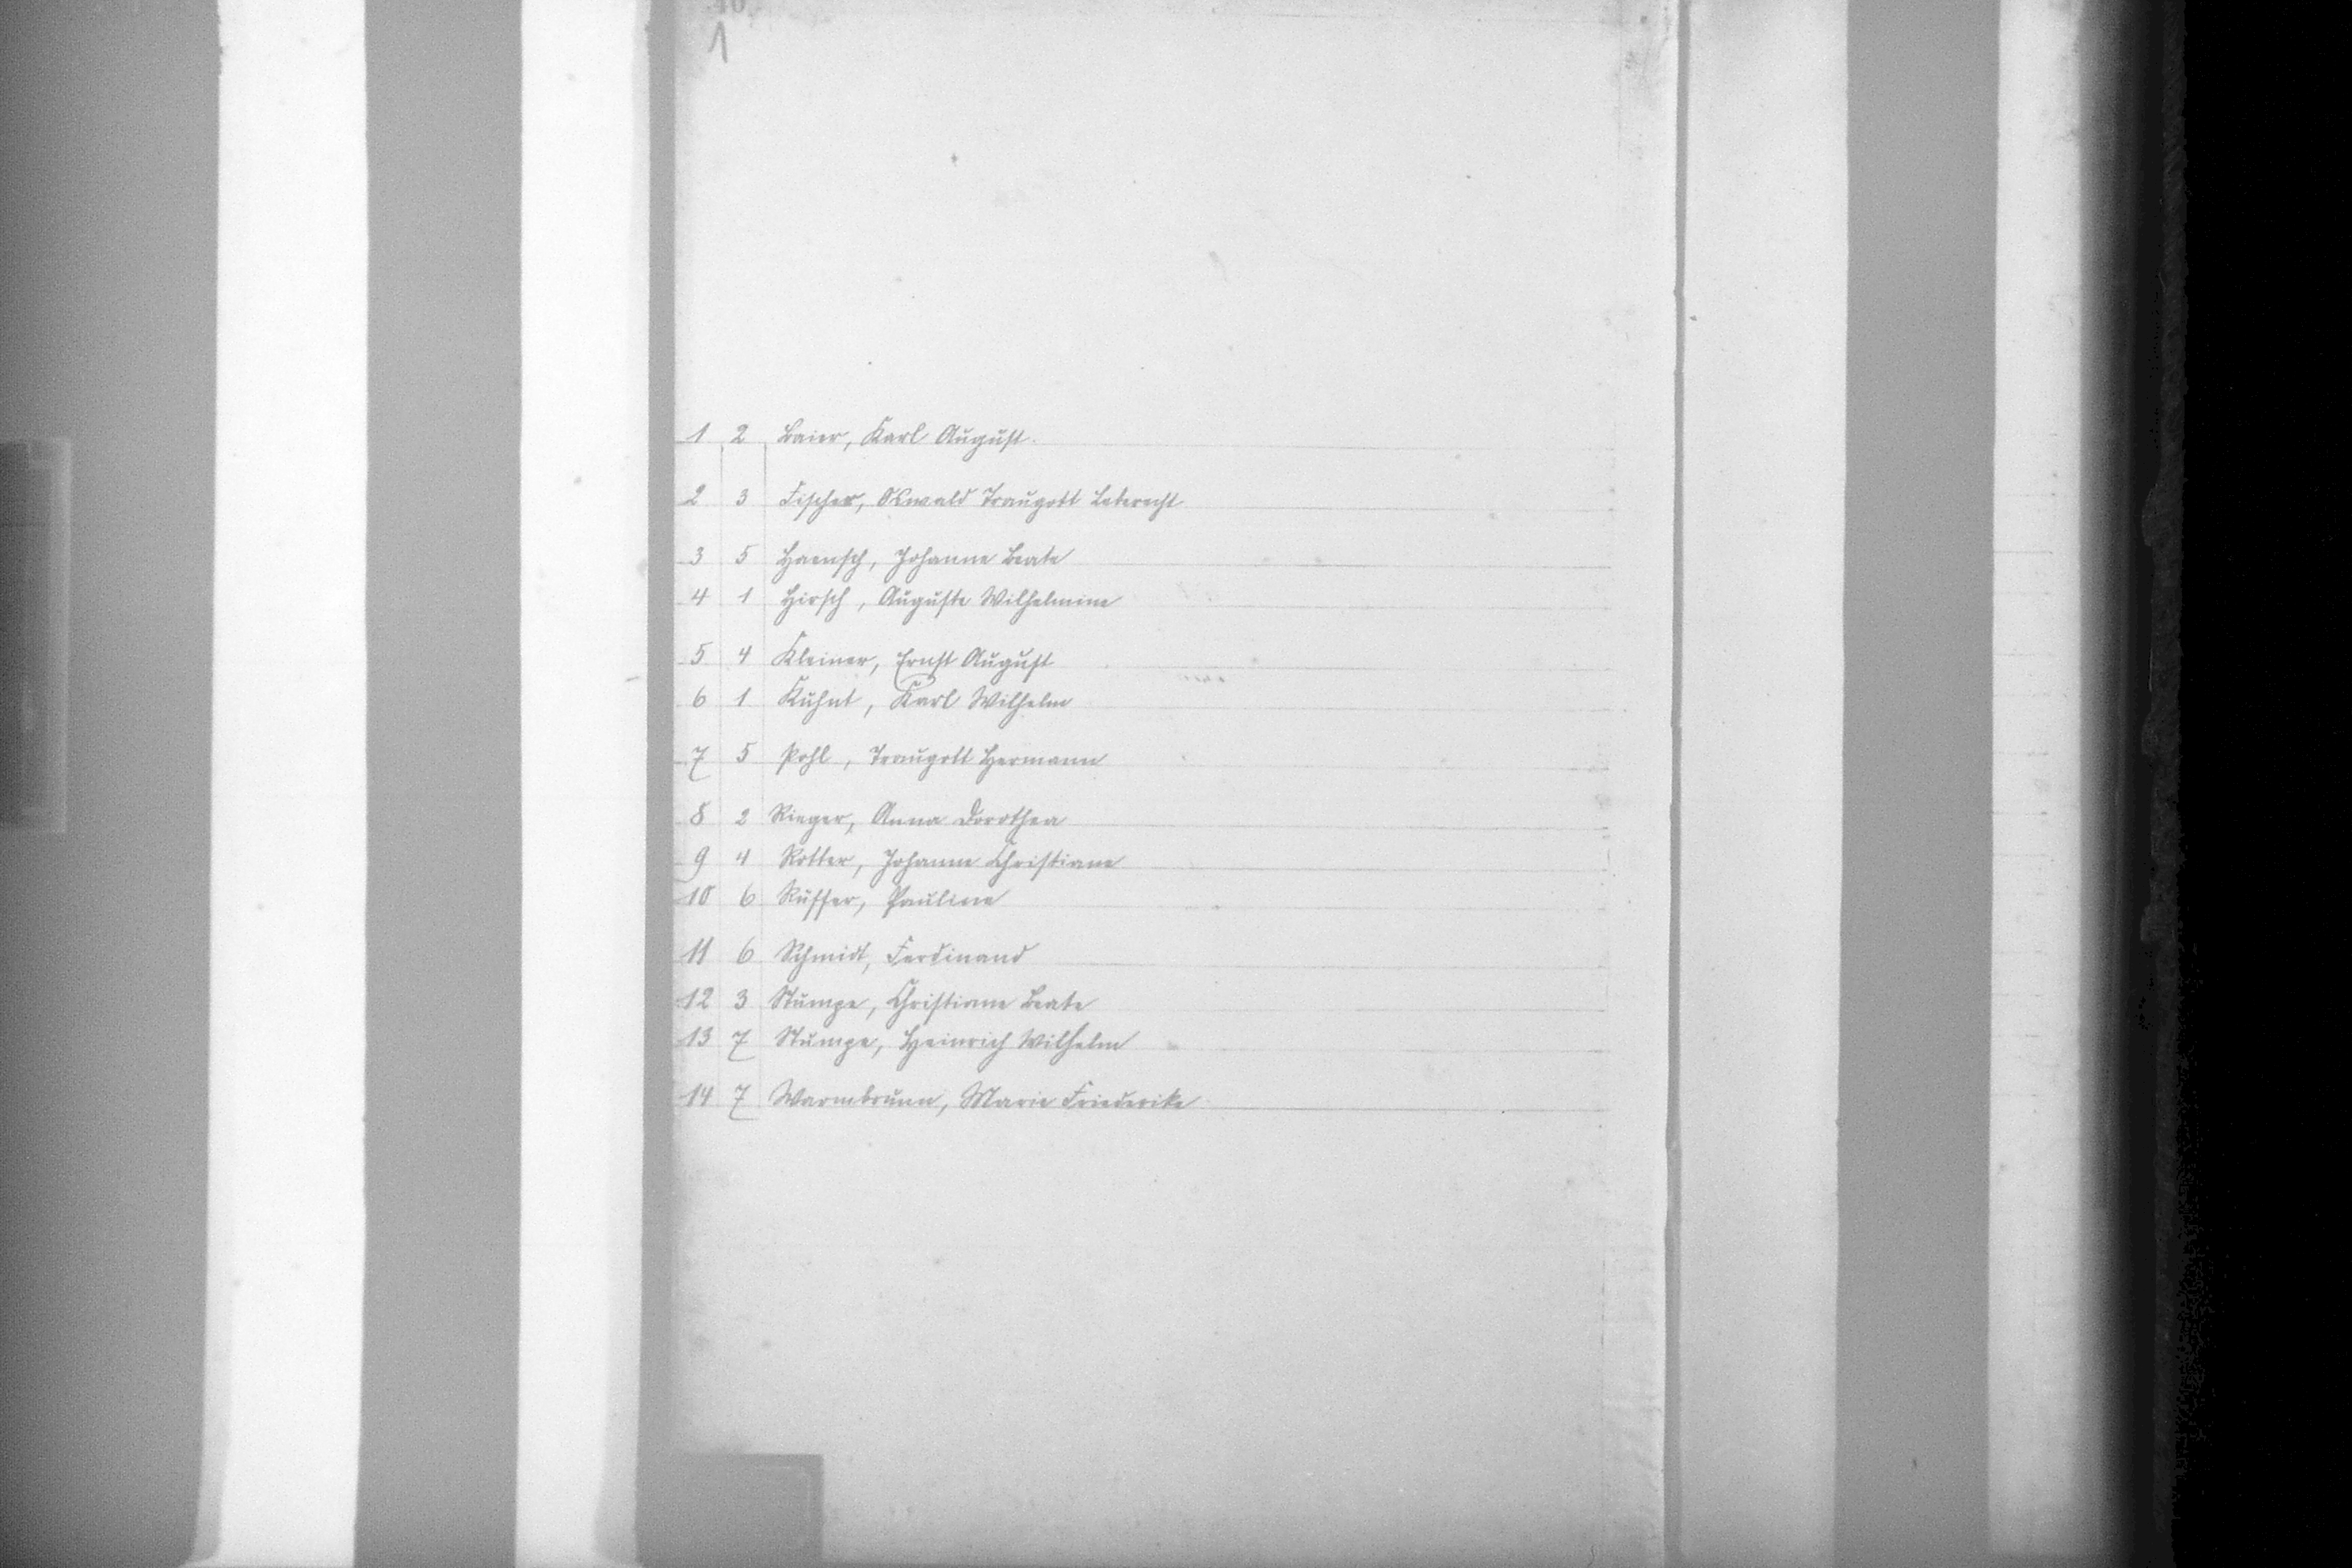 1
1 2 Baier, Karl August.
2 3 Fischer, Oswald Traugott Leberecht
3 5 Haensch, Johanne Beate
4 1 Hirsch, Auguste Wilhelmine
5 4 Kleiner, Ernst August
6 1 Kuhnt, Karl Wilhelm
7 5 Pohl, Traugott Hermann
8 2 Rieger, Anna Dorothea
9 4 Rotter, Johanne Christiane
10 6 Rüffer, Pauline
11 6 Schmidt, Ferdinand
12 3 Stumpe, Christiane Beate
13 7 Stumpe, Heinrich Wilhelm
14 7 Warmbrunn, Marie Friederike